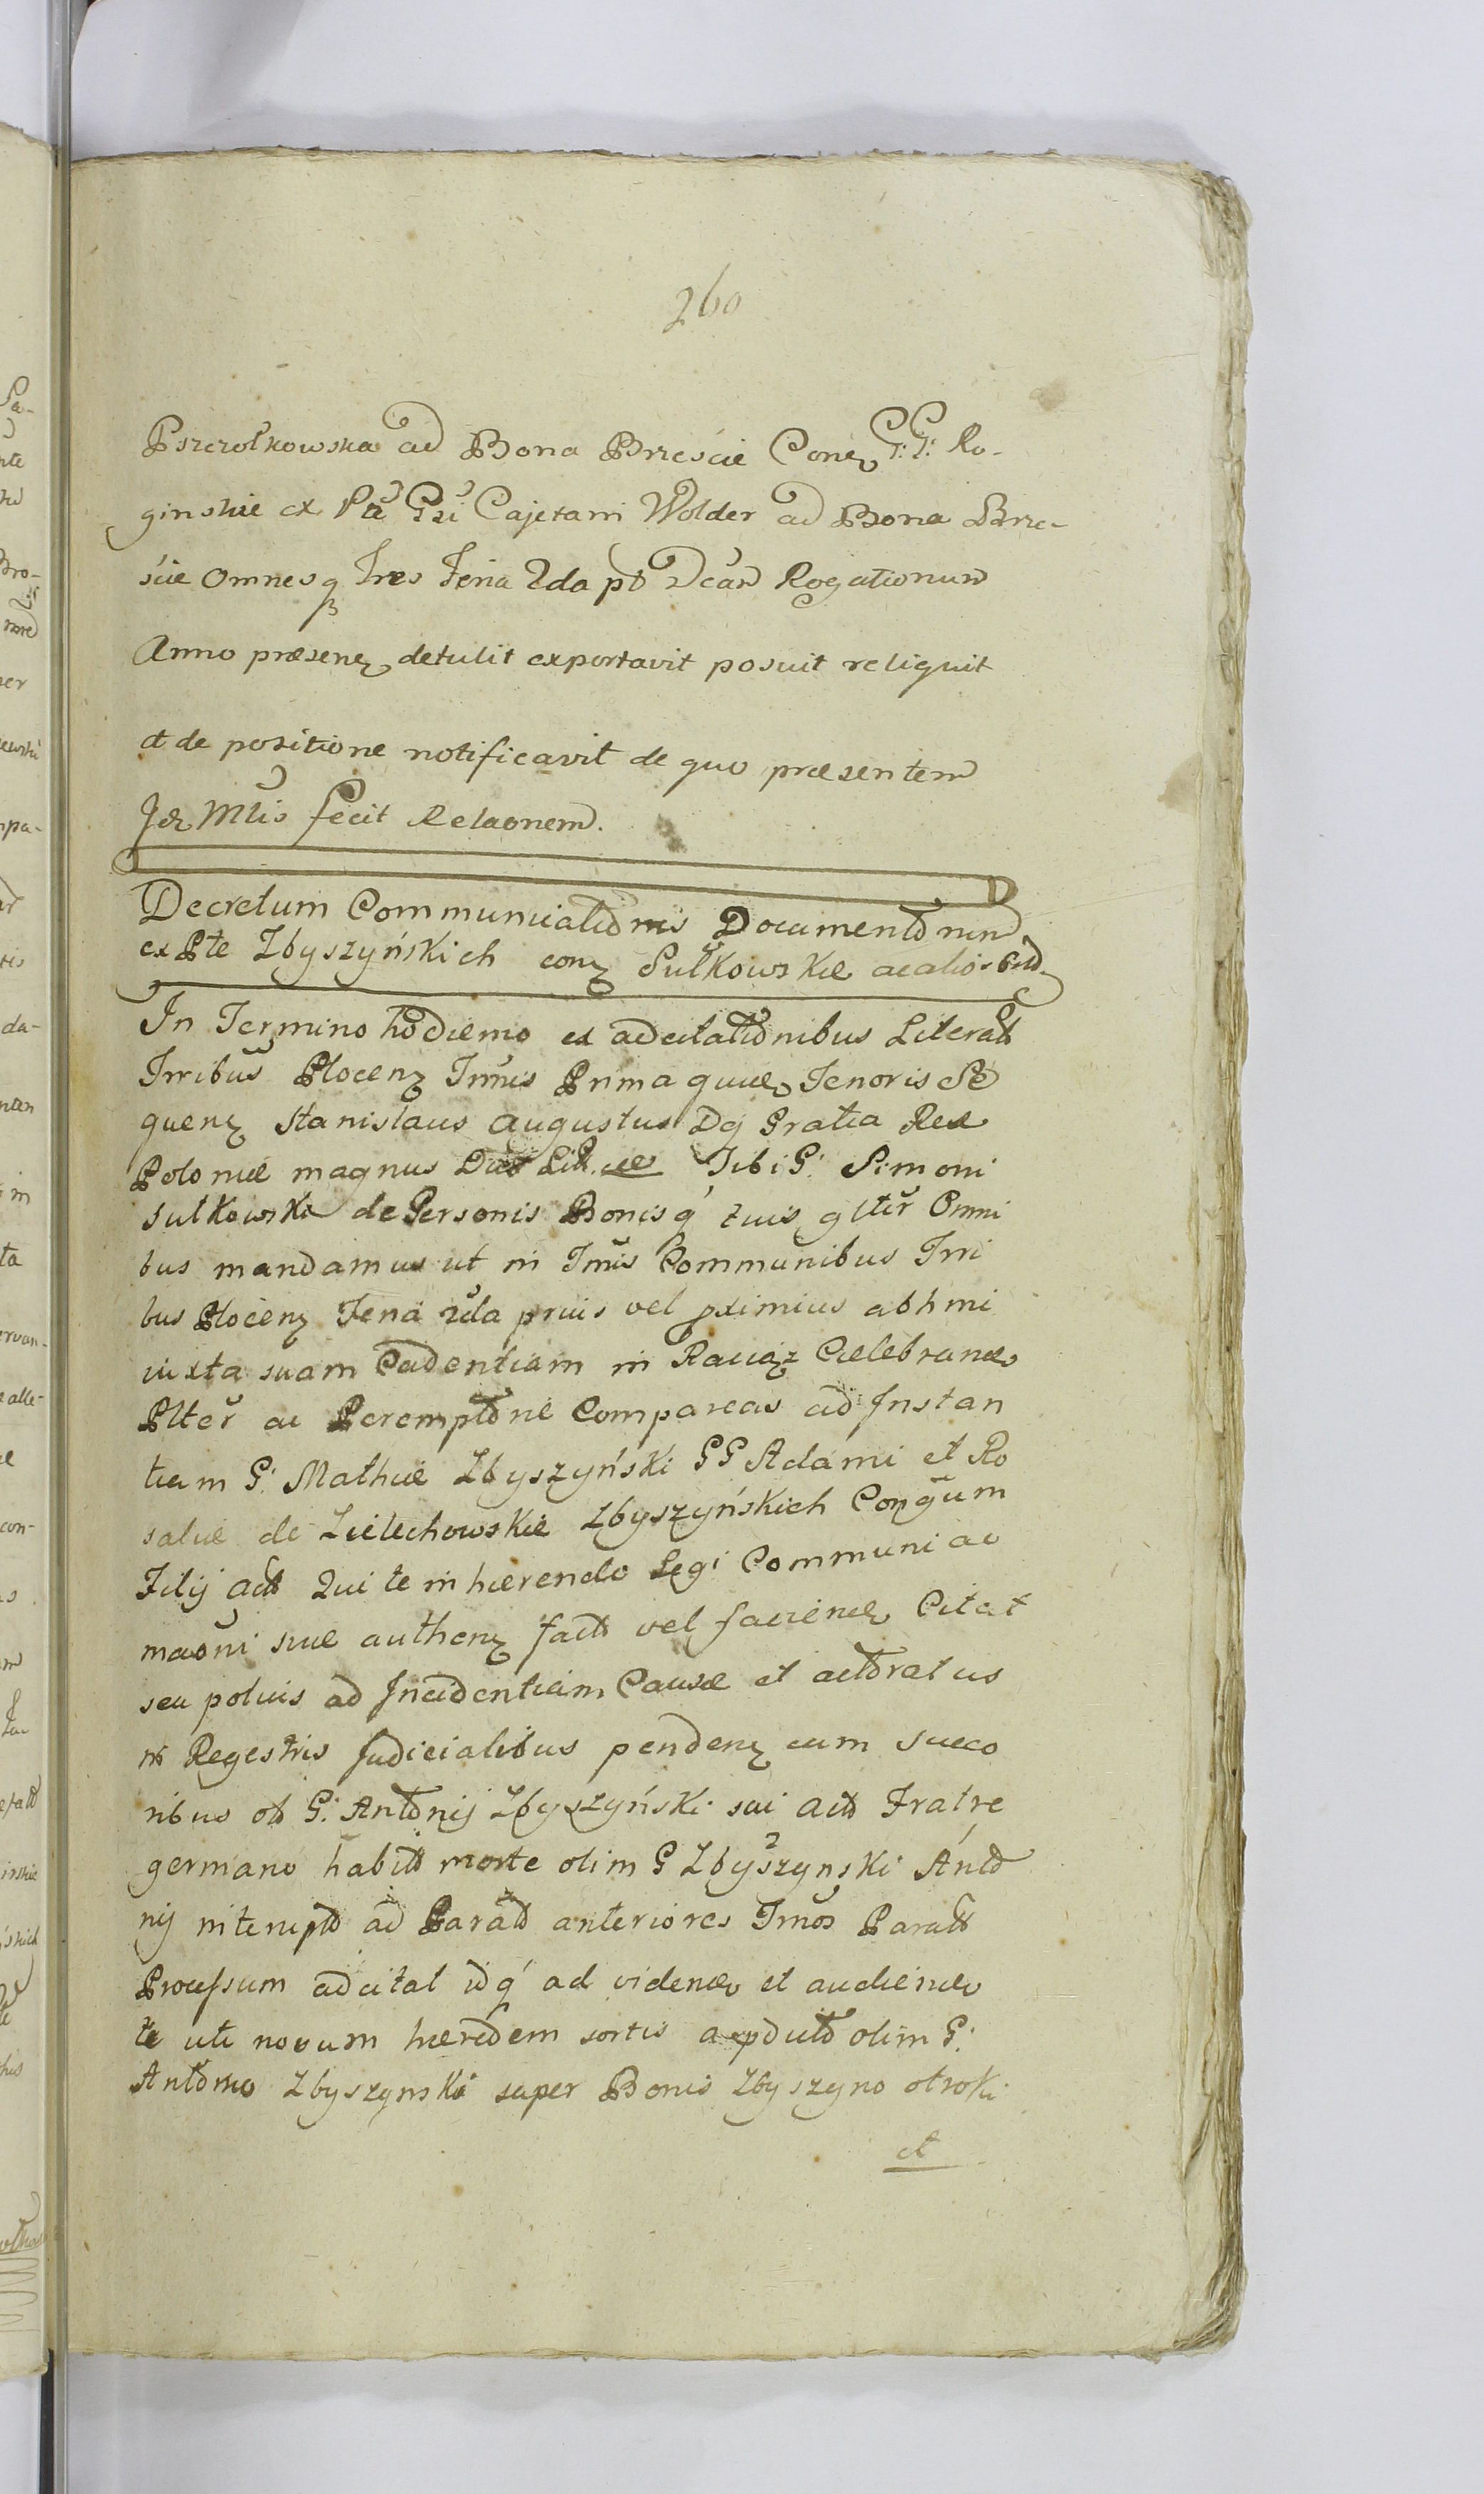 260
Pszczołkowska ad Bona Brzeście Conę G: G: Ro-
ginskie ex Pte Gsi Cajetani Wolder ad Bona Brze-
ście omnesq Tres Feria 2da pt Dcam Rogationum
Anno præsenę detulit exportavit posuit reliquit
et de positione notificavit de quo præsentem
Idę Mlis fecit Relaonem.
Decretum Communicationis Documentorum
ex Pte Zbyszyńskich conę Sułkowskie ac alios
In Termino hodierno ex adcitationibus Literat
Trribus Plocenę Tmis Prima quæ Tenoris Se
quenę Stanislaus Augustus D G Gratia Rex
Poloniæ magnus Dux Tibi G: Simoni
Sułkowski de Personis Bonisq tuis gltir Omni
bus mandamus ut in Tmis Communibus Trri
bus Plocenę Feria 2da prius vel pximius abhinc
iuxta suam Cadentiam in Raciąż Celebranę
Plter ac Peremptorie Compareas ad Instan
tiam G: Mathiæ Zbyszyński GG Adami et Ro
saliæ de Zielechowskie Zbyszyńskich Congum
Filij act Qui te inhærendo Legi Communi ac
maoni suæ authenę fact vel facienę Citat
seu potius ad Incidentiam Causæ et actoratus
in Regestris Judicialibus pendenę cum Succo
ribus ot G: Antonij Zbyszyński sui act Fratre
germano habito morte olim G Zbyszynski Anto
nij intempto ad Parat anteriores Tmos Parato
Processum adcitat idq ad videnę et audienę
te uti novum hæredem sortis olim G:
Antonio Zbyszynski super Bonis Zbyszyno otroki
et